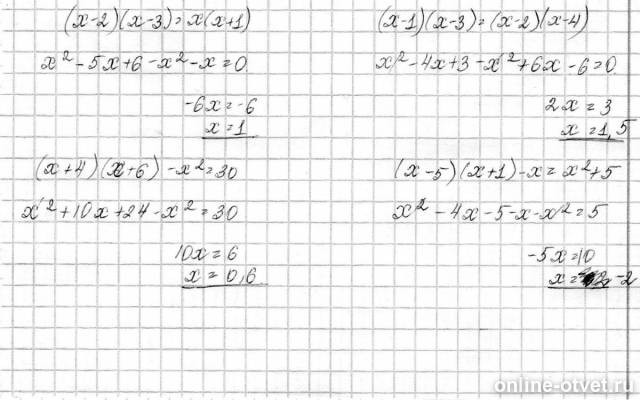 (x-2)(x-3)=x(x+1)
x²-5x+6-x²-x=0
-6x=-6
x=1
(x-1)(x-3)=(x-2)(x-4)
x²-4x+3-x²+6x-6=0
2x=3
x=1,5
(x+4)(x+6)-x²=30
x²+10x+24-x²=30
10x=6
x=0,6
(x-5)(x+1)-x=x²+5
x²-4x-5-x-x²=5
-5x=10
x=-2
online-otvet.ru